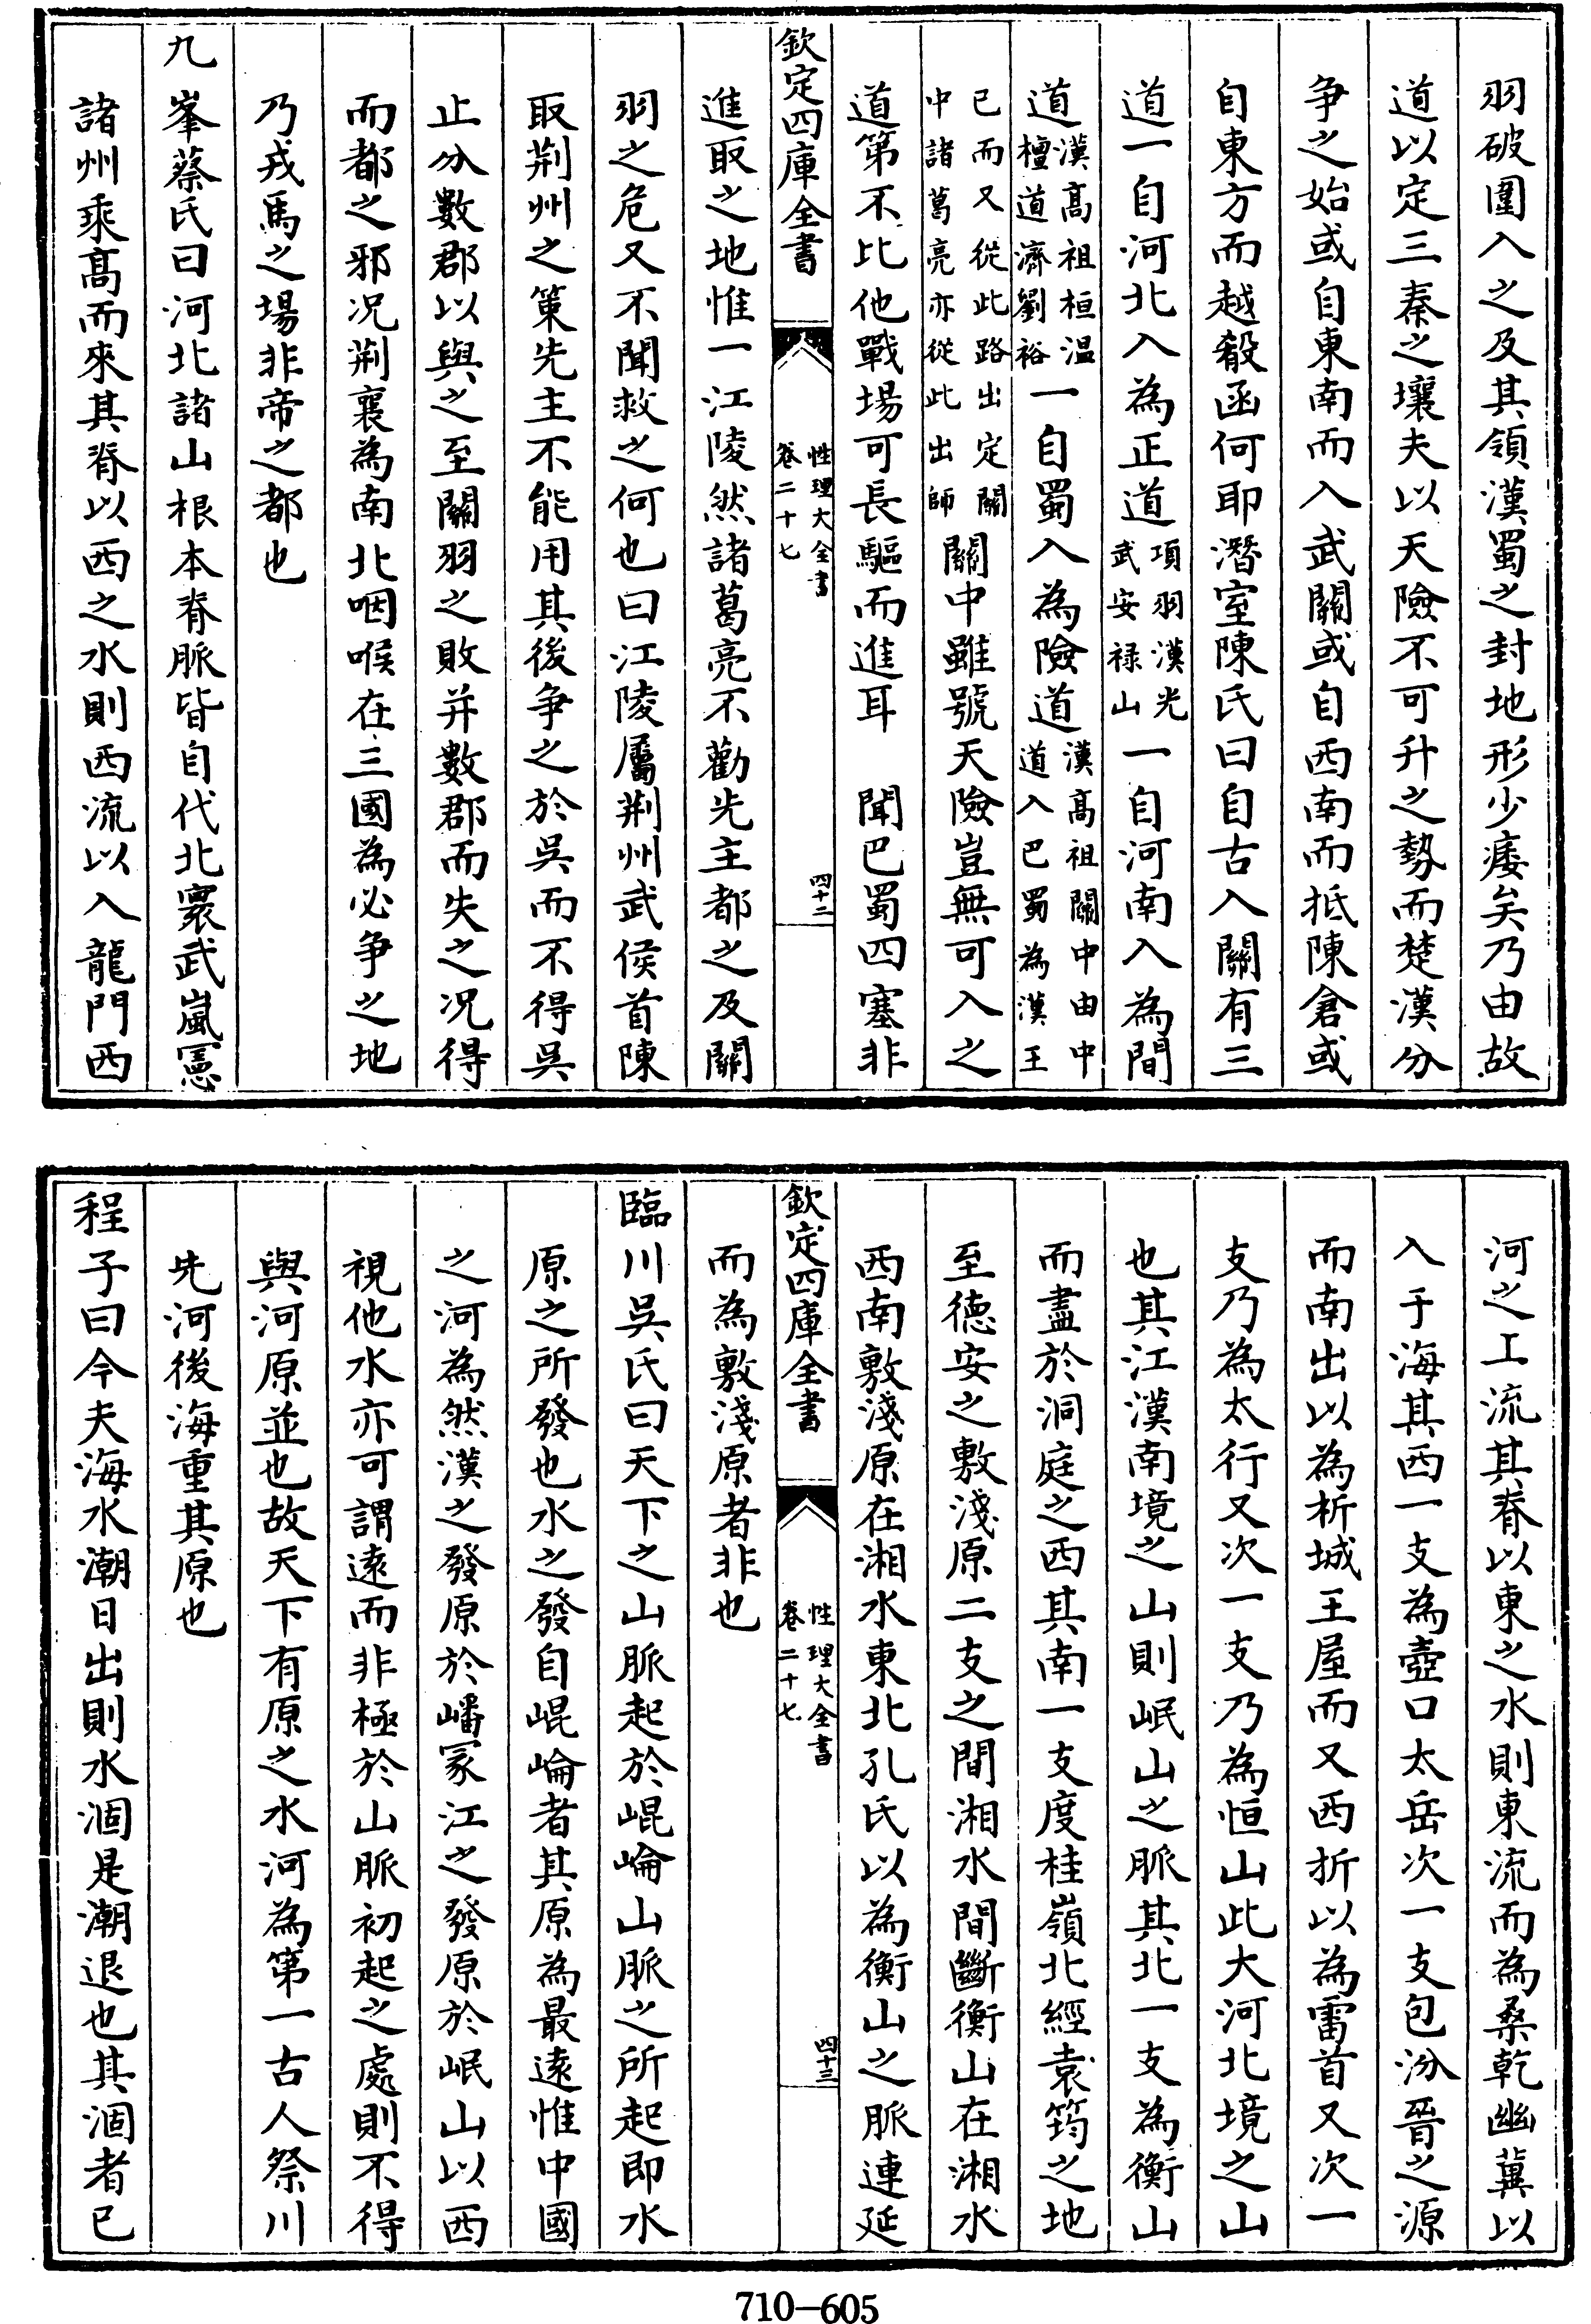 羽破圍入之及其領漢蜀之封地形少痿矣乃由故
道以定三秦之壤夫以天險不可升之勢而楚漢分
爭之始或自東南而入武關或自西南而抵陳倉或
自東方而越殽函何耶潛室陳氏曰自古入關有三
道一自河北入為正道項羽漢光武安祿山一自河南入為間
道漢高祖桓温檀道濟劉裕一自蜀入為險道漢高祖關中由中道入巴蜀為漢王
已而又從此路出定關中諸葛亮亦從此出師關中雖號天險豈無可入之
道第不比他戰場可長驅而進耳 聞巴蜀四塞非
欽定四庫全書 性理大全書卷二十七 四十二
進取之地惟一江陵然諸葛亮不勸先主都之及關
羽之危又不聞救之何也曰江陵屬荆州武侯首陳
取荆州之策先主不能用其後爭之於吳而不得吳
止分數郡以與之至關羽之敗并數郡而失之况得
而都之邪况荆襄為南北咽喉在三國為必爭之地
乃戎馬之場非帝之都也
九峯蔡氏曰河北諸山根本脊脈皆自代北寰武嵐憲
諸州乘高而來其脊以西之水則西流以入龍門西
河之工流其脊以東之水則東流而為桑乾幽冀以
入于海其西一支為壺口太岳次一支包汾晉之源
而南出以為析城王屋而又西折以為雷首又次一
支乃為太行又次一支乃為恒山此大河北境之山
也其江漢南境之山則岷山之脈其北一支為衡山
而盡於洞庭之西其南一支度桂嶺北經袁筠之地
至德安之敷淺原二支之間湘水間斷衡山在湘水
西南敷淺原在湘水東北孔氏以為衡山之脈連延
欽定四庫全書 性理大全書卷二十七 四十三
而為敷淺原者非也
臨川吳氏曰天下之山脈起於崐崘山脈之所起即水
原之所發也水之發自崐崘者其原為最遠惟中國
之河為然漢之發原於嶓冢江之發原於岷山以西
視他水亦可謂遠而非極於山脈初起之處則不得
與河原並也故天下有原之水河為第一古人祭川
先河後海重其原也
程子曰今夫海水潮日出則水涸是潮退也其涸者已
710-605